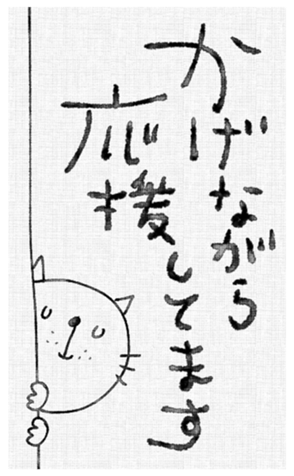 かげながら
応援してます